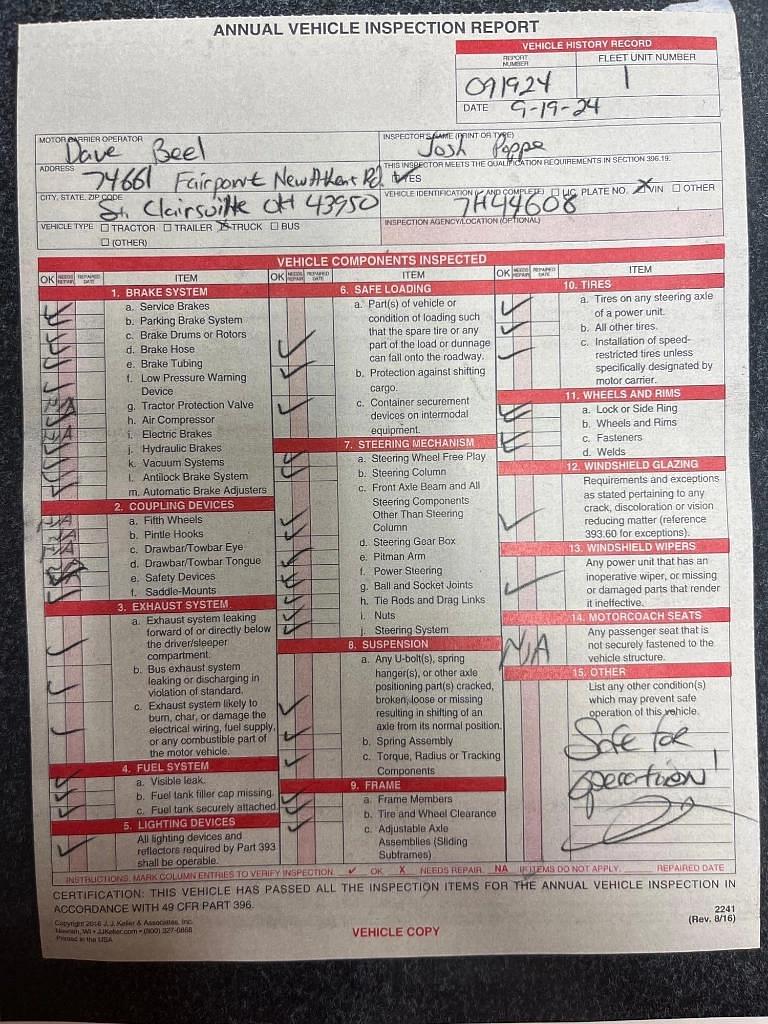 ANNUAL VEHICLE INSPECTION REPORT
VEHICLE HISTORY RECORD
REPORT NUMBER
091924
FLEET UNIT NUMBER
1
DATE 9-19-24
MOTOR CARRIER OPERATOR
Dave Beel
INSPECTOR'S NAME (PRINT OR TYPE)
Josh Poppe
ADDRESS
74661 Fairpoint New Athens Rd.
THIS INSPECTOR MEETS THE QUALIFICATION REQUIREMENTS IN SECTION 396.19.
YES
CITY, STATE, ZIP CODE
St. Clairsville OH 43950
VEHICLE IDENTIFICATION (✓ AND COMPLETE) LIC. PLATE NO. VIN OTHER
7H44608
VEHICLE TYPE TRACTOR TRAILER TRUCK BUS
(OTHER)
INSPECTION AGENCY/LOCATION (OPTIONAL)
VEHICLE COMPONENTS INSPECTED
OK NEEDS REPAIR REPAIRED DATE ITEM
1. BRAKE SYSTEM
a. Service Brakes
b. Parking Brake System
c. Brake Drums or Rotors
d. Brake Hose
e. Brake Tubing
f. Low Pressure Warning
Device
g. Tractor Protection Valve
h. Air Compressor
i. Electric Brakes
j. Hydraulic Brakes
k. Vacuum Systems
l. Antilock Brake System
m. Automatic Brake Adjusters
2. COUPLING DEVICES
a. Fifth Wheels
b. Pintle Hooks
c. Drawbar/Towbar Eye
d. Drawbar/Towbar Tongue
e. Safety Devices
f. Saddle-Mounts
3. EXHAUST SYSTEM
a. Exhaust system leaking
forward of or directly below
the driver/sleeper
compartment.
b. Bus exhaust system
leaking or discharging in
violation of standard.
c. Exhaust system likely to
burn, char, or damage the
electrical wiring, fuel supply,
or any combustible part of
the motor vehicle.
4. FUEL SYSTEM
a. Visible leak.
b. Fuel tank filler cap missing.
c. Fuel tank securely attached.
5. LIGHTING DEVICES
All lighting devices and
reflectors required by Part 393
shall be operable.
OK NEEDS REPAIR REPAIRED DATE ITEM
6. SAFE LOADING
a. Part(s) of vehicle or
condition of loading such
that the spare tire or any
part of the load or dunnage
can fall onto the roadway.
b. Protection against shifting
cargo.
c. Container securement
devices on intermodal
equipment.
7. STEERING MECHANISM
a. Steering Wheel Free Play
b. Steering Column
c. Front Axle Beam and All
Steering Components
Other Than Steering
Column
d. Steering Gear Box
e. Pitman Arm
f. Power Steering
g. Ball and Socket Joints
h. Tie Rods and Drag Links
i. Nuts
j. Steering System
8. SUSPENSION
a. Any U-bolt(s), spring
hanger(s), or other axle
positioning part(s) cracked,
broken, loose or missing
resulting in shifting of an
axle from its normal position.
b. Spring Assembly
c. Torque, Radius or Tracking
Components
9. FRAME
a. Frame Members
b. Tire and Wheel Clearance
c. Adjustable Axle
Assemblies (Sliding
Subframes)
OK NEEDS REPAIR REPAIRED DATE ITEM
10. TIRES
a. Tires on any steering axle
of a power unit.
b. All other tires.
c. Installation of speed-
restricted tires unless
specifically designated by
motor carrier.
11. WHEELS AND RIMS
a. Lock or Side Ring
b. Wheels and Rims
c. Fasteners
d. Welds
12. WINDSHIELD GLAZING
Requirements and exceptions
as stated pertaining to any
crack, discoloration or vision
reducing matter (reference
393.60 for exceptions).
13. WINDSHIELD WIPERS
Any power unit that has an
inoperative wiper, or missing
or damaged parts that render
it ineffective.
14. MOTORCOACH SEATS
N/A
Any passenger seat that is
not securely fastened to the
vehicle structure.
15. OTHER
List any other condition(s)
which may prevent safe
operation of this vehicle.
Safe for
operation!
INSTRUCTIONS: MARK COLUMN ENTRIES TO VERIFY INSPECTION: ✓ OK X NEEDS REPAIR NA IF ITEMS DO NOT APPLY REPAIRED DATE
CERTIFICATION: THIS VEHICLE HAS PASSED ALL THE INSPECTION ITEMS FOR THE ANNUAL VEHICLE INSPECTION IN
ACCORDANCE WITH 49 CFR PART 396.
Copyright 2016 J. J. Keller & Associates, Inc.
Neenah, WI • JJKeller.com • (800) 327-6868
Printed in the USA
VEHICLE COPY
2241
(Rev. 8/16)